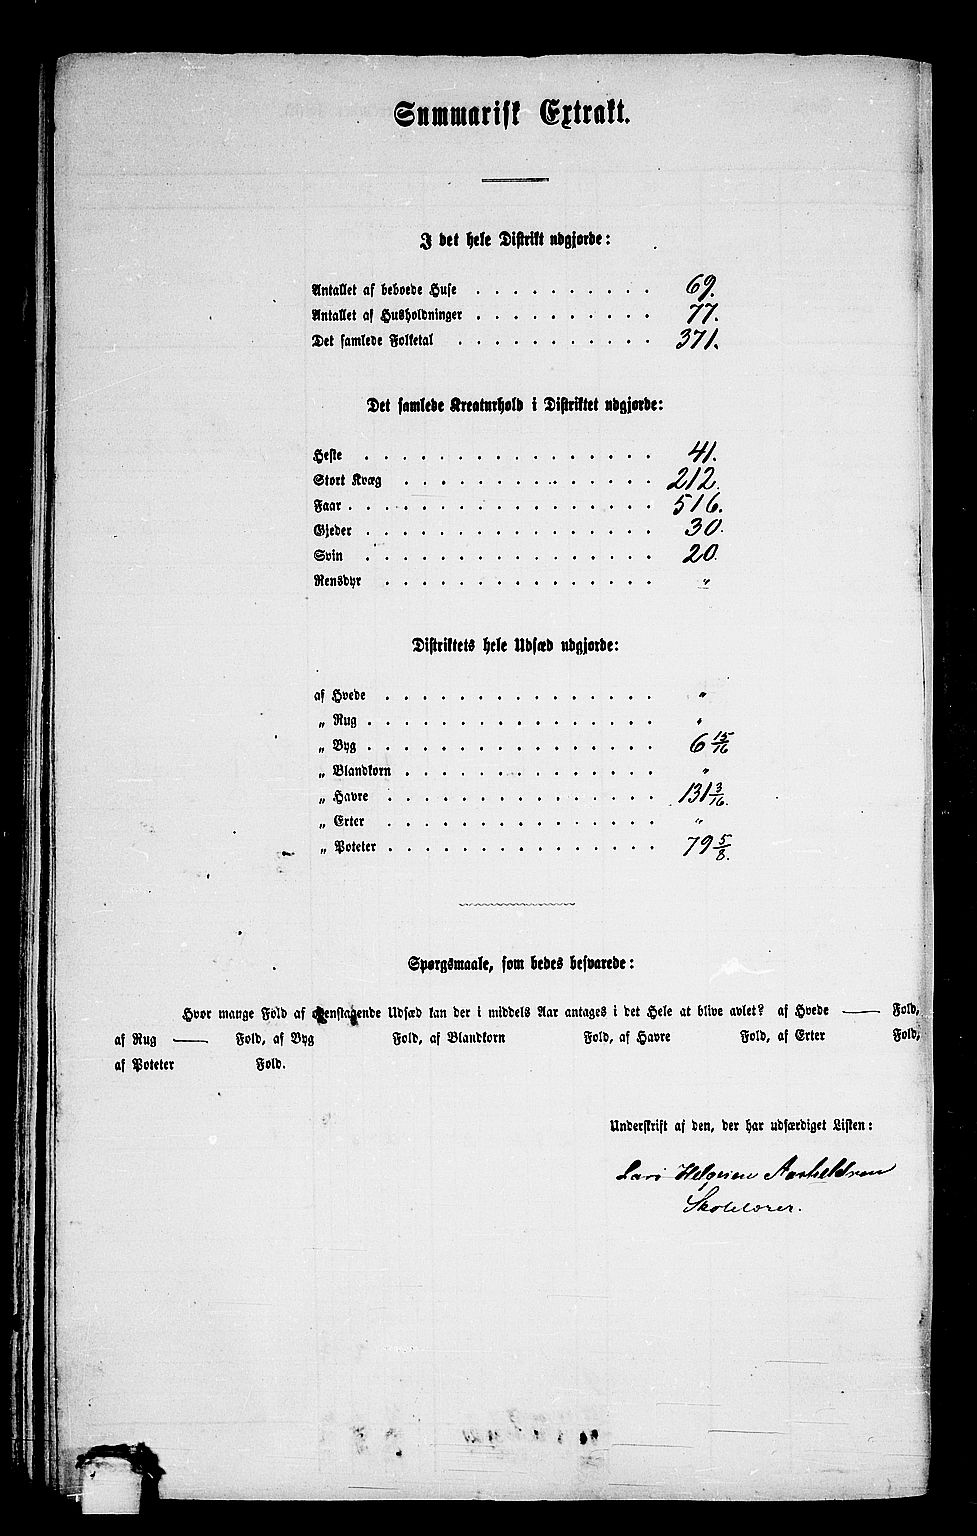 Summarisk Extrakt.
I det hele Distrikt udgjorde:
Antallet af beboede Huse . . . . . . . . . . 69.
Antallet af Husholdninger . . . . . . . . . . 77.
Det samlede Folketal . . . . . . . . . . . 371.
Det samlede Kreaturhold i Distriktet udgjorde:
Heste . . . . . . . . . . . . . . . 41.
Stort Kvæg . . . . . . . . . . . . . 212.
Faar . . . . . . . . . . . . . . . 516.
Gjeder . . . . . . . . . . . . . . 30.
Svin . . . . . . . . . . . . . . . 20.
Rensdyr . . . . . . . . . . . . . . „
Distriktets hele Udsæd udgjorde:
af Hvede . . . . . . . . . . . . . . „
„ Rug . . . . . . . . . . . . . . . „
„ Byg . . . . . . . . . . . . . . . 6 15/16
„ Blandkorn . . . . . . . . . . . . . „
„ Havre . . . . . . . . . . . . . . 131 3/16.
„ Erter . . . . . . . . . . . . . . „
„ Poteter . . . . . . . . . . . . . . 79 5/8.
Spørgsmaale, som bedes besvarede:
Hvor mange Fold af ovenstaaende Udsæd kan der i middels Aar antages i det Hele at blive avlet? af Hvede — Fold,
af Rug — Fold, af Byg Fold, af Blandkorn Fold, af Havre Fold, af Erter Fold,
af Poteter Fold.
Underskrift af den, der har udfærdiget Listen:
Lars Helgesen
Skolelærer.